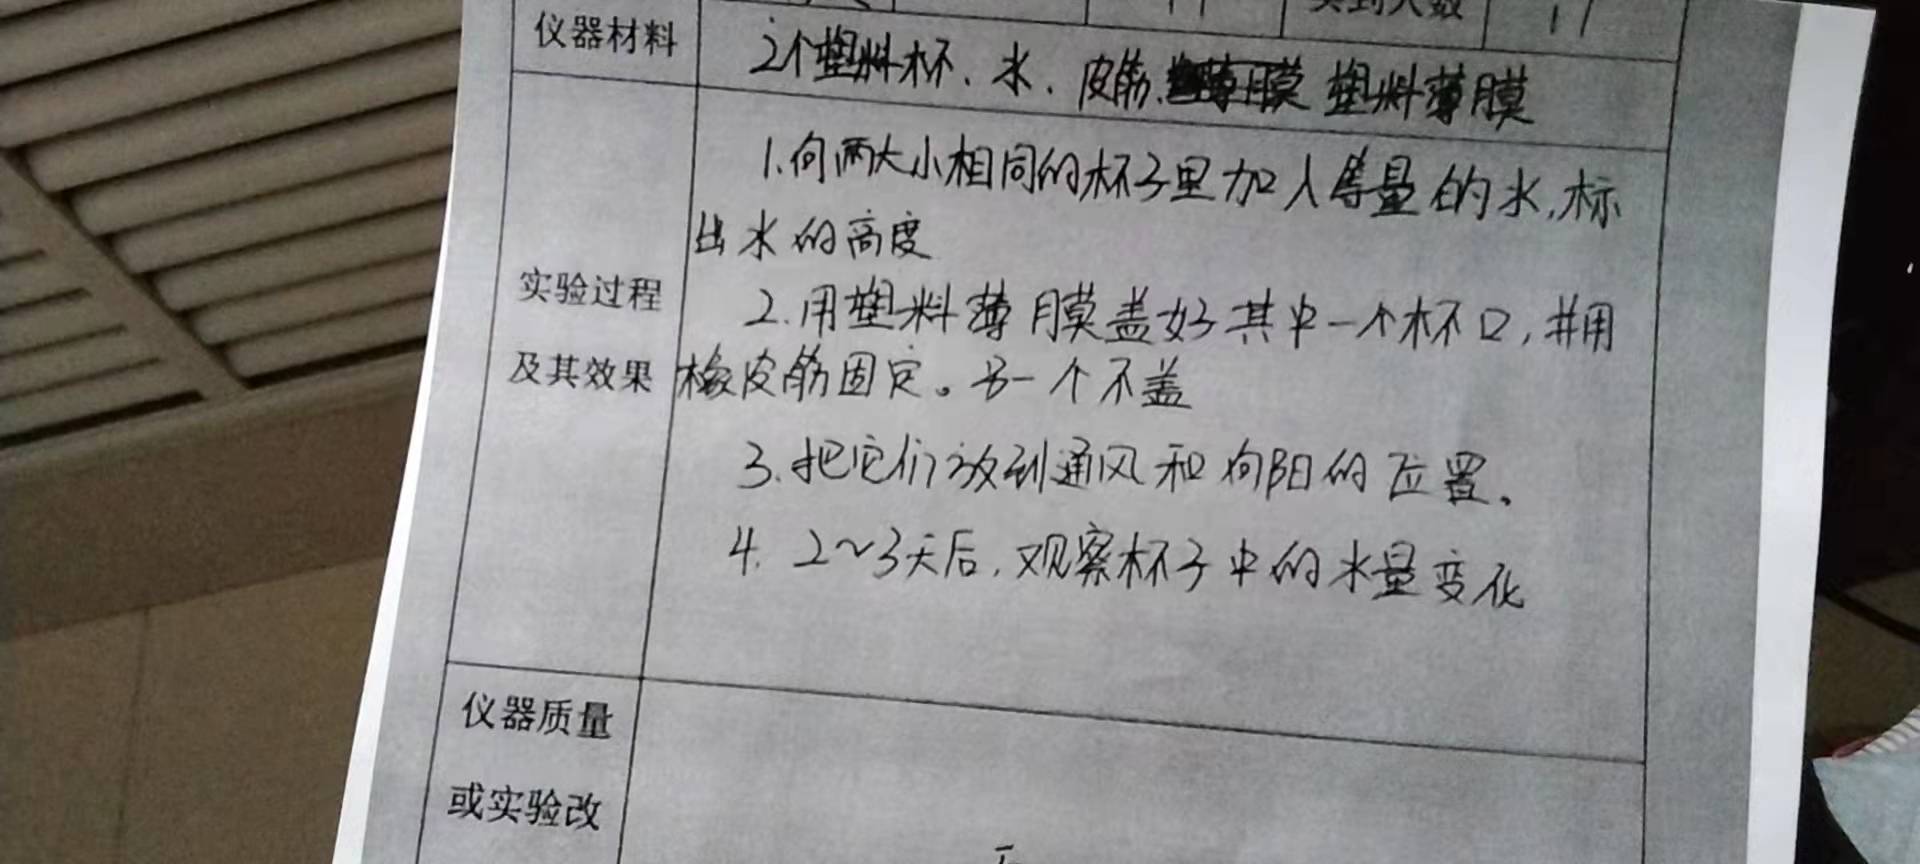 仪器材料
2个塑料杯、水、皮筋、塑料薄膜
1.向两大小相同的杯子里加入等量的水,标
出水的高度
实验过程
2.用塑料薄膜盖好其中一个杯口,并用
及其效果
橡皮筋固定。另一个不盖
3.把它们放到通风和向阳的位置。
4. 2~3天后,观察杯子中的水量变化
仪器质量
或实验改